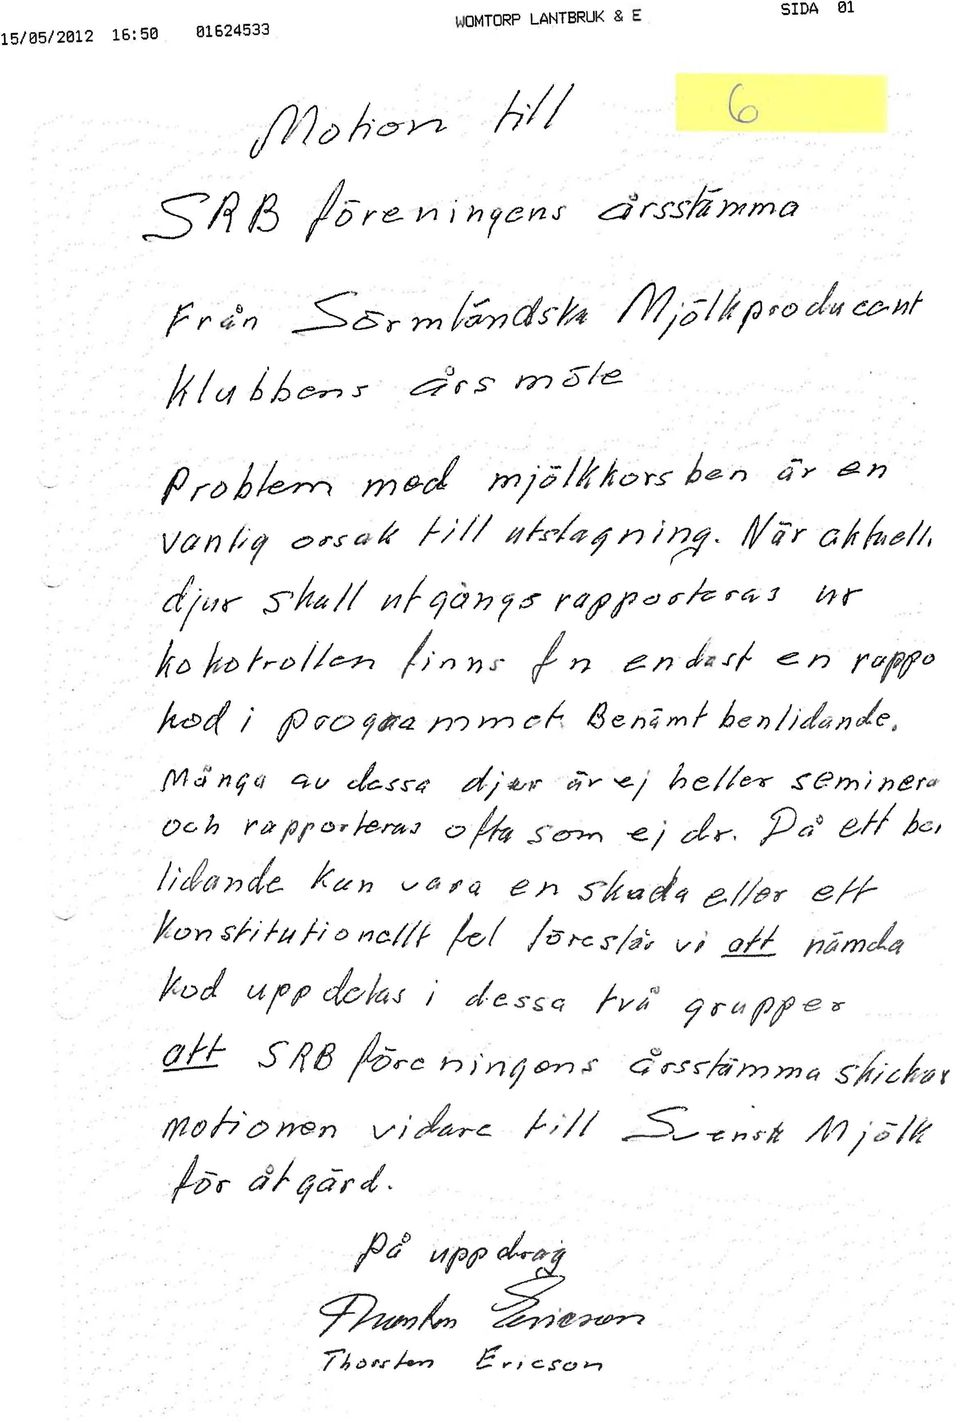 15/05/2012 16:50 01624533 WOMTORP LANTBRUK & E SIDA 01
6
Motion till
SRB föreningens årsstämma
Från Sörmländska Mjölkproducent
Klubbens års möte
Problem med mjölkkors ben är en
vanlig orsak till utslagning. När aktuell
djur skall utgångs rapporteras ur
kokotrollen finns fn endast en rappo
kod i programmet Benämt benlidande.
Många av dessa djur är ej heller seminera
och rapporteras ofta som ej dr. Då ett be
lidande kan vara en skada eller ett
Konstitutionellt fel föreslår vi att nämda
kod uppdelas i dessa två grupper
att SRB föreningens årsstämma skickar
motionen vidare till Svensk Mjölk
för åtgärd.
På uppdrag
Thorsten Ericson
Thorsten Ericson